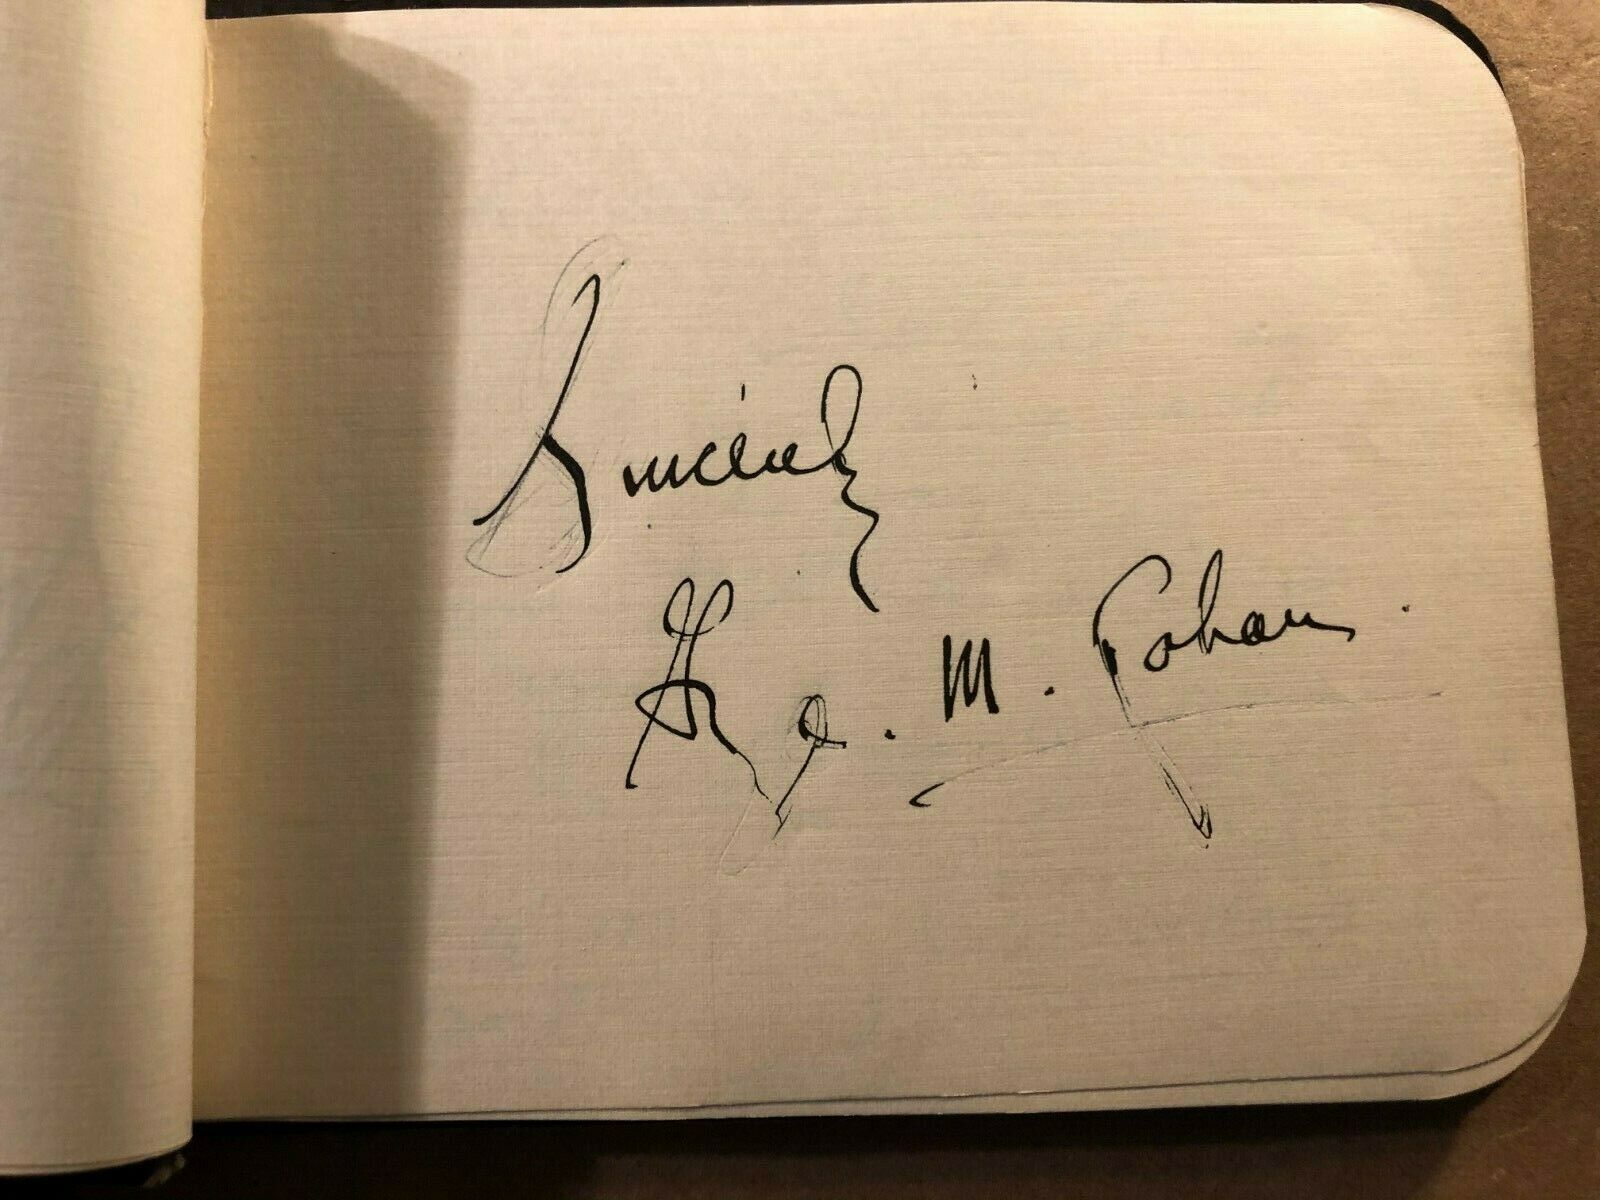 Sincerely
Geo. M. Cohan.